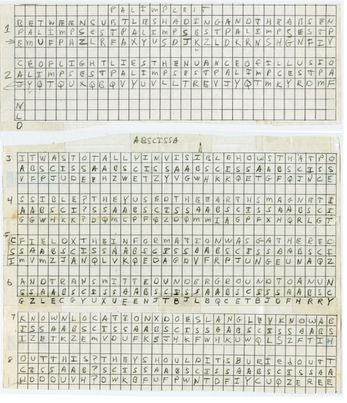 PALIMPCEST
1
BETWEENSUBTLESHADINGANDTHEABSEN
PALIMPSESTPALIMPSESTPALIMPSESTP
EMUFPHZLRFAXYUSDJKZLDKRNSHGNFIV
2
CEOFLIGHTLIESTHENUANCEOFILLUSIO
JYQTQUXQBQVYUVLLTREVJYQTMKYRDMF
N
L
D
ABSCISSA
3 ITWASTOTALLYINVISIBLEHOWSTHATPO
ABSCISSAABSCISSAABSCISSAABSCISS
VFPJUDEEHZWETZYVGWHKKQETGFQJNCE
4 SSIBLE?THEYUSEDTHEEARTHSMAGNETI
AABSCI?SSAABSCISSAABSCISSAABSCI
GGWHKK?DQMCPFQZDQMMIAGPFXHQRLGT
5
CFIELDXTHEINFORMATIONWASGATHERED
SSAABSCISSAABSCISSAABSCISSAABSCI
IMVMZJANQLVKQEDAGDVFRPJUNGEUNAQZ
6 ANDTRANSMITTEDUNDERGRUUNDTOANUN
SSAABSCISSAABSCISSAABSCISSAABSC
GZLECGYUXUEENJTBJLBQCETBJDFHRRY
7 KNOWNLOCATIONXDOESLANGLEYKNOWAB
ISSAABSCISSAABSCISSAABSCISSAABS
IZETKZEMVDUFKSJHKFWHKUWQLSZFTIH
8 OUTTHIS?THEYSHOULDITSBURIEDOUTT
CISSAAB?SCISSAABSCISSAABSCISSAA
HDDDUVH?DWKBFUFPWNTDFIYCUQZEREE